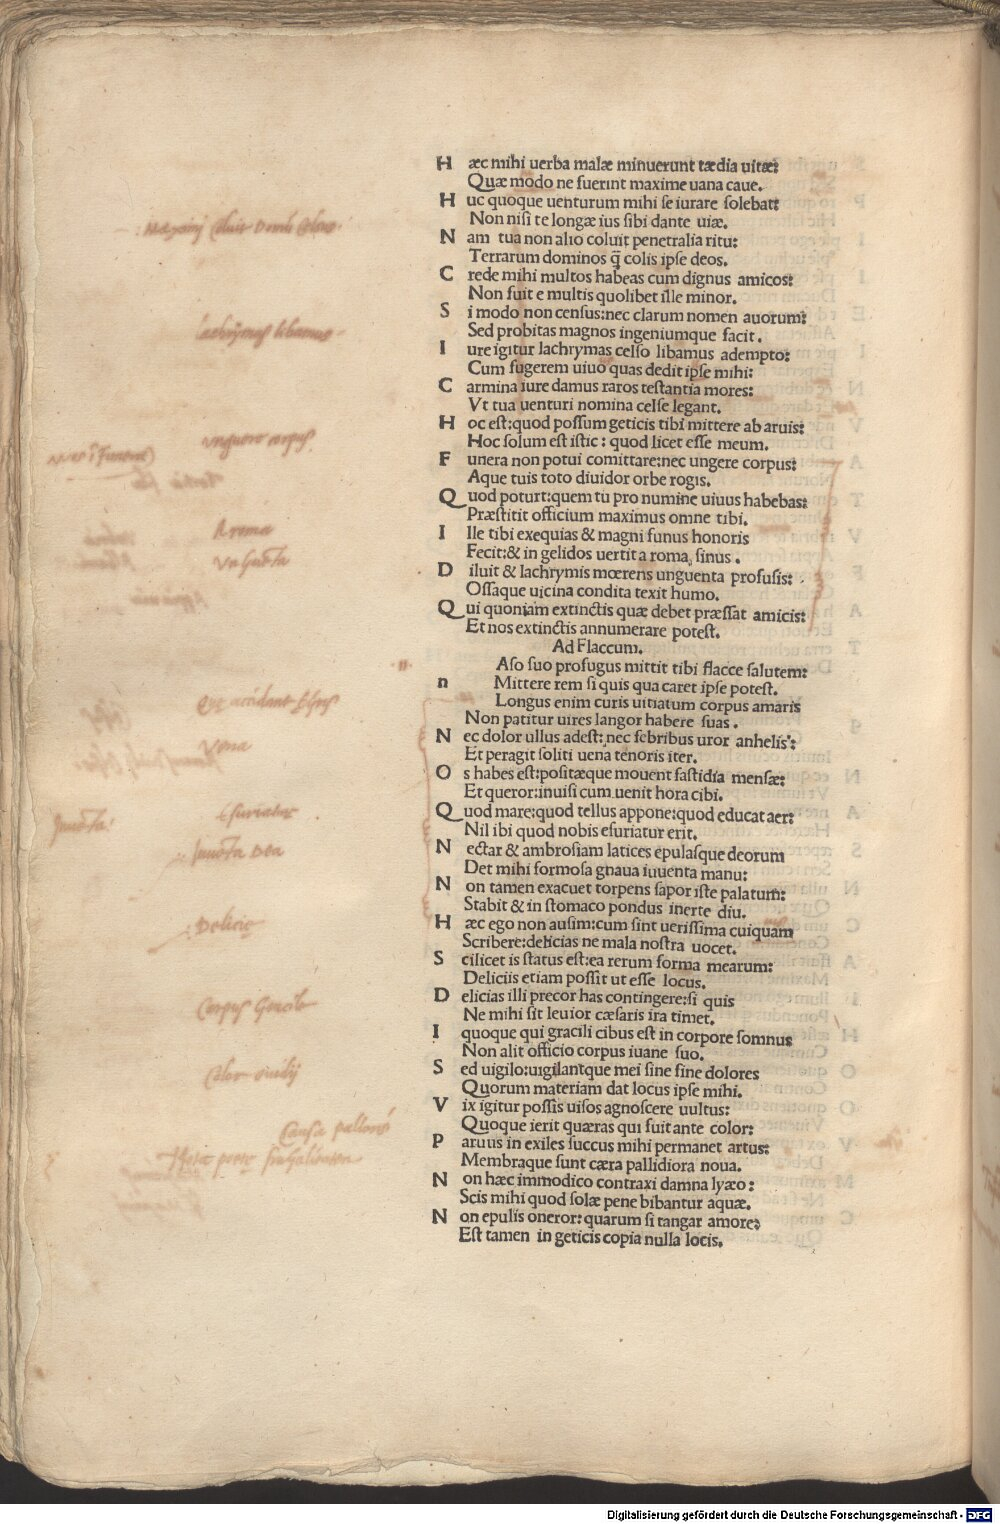 H æc mihi uerba malæ minuerunt tædia uitæ:
Quæ modo ne fuerint maxime uana caue.
H uc quoque uenturum mihi se iurare solebat:
Non nisi te longæ ius sibi dante uiæ.
N am tua non alio coluit penetralia ritu:
Terrarum dominos q̃ colis ipse deos.
C rede mihi multos habeas cum dignus amicos:
Non fuit e multis quolibet ille minor.
S i modo non census:nec clarum nomen auorum:
Sed probitas magnos ingeniumque facit.
I ure igitur lachrymas celso libamus adempto:
Cum fugerem uiuo quas dedit ipse mihi:
C armina iure damus raros testantia mores:
Vt tua uenturi nomina celse legant.
H oc est:quod possum geticis tibi mittere ab aruis:
Hoc solum est istic: quod licet esse meum.
F unera non potui comittare:nec ungere corpus:
Aque tuis toto diuidor orbe rogis.
Q uod poturt:quem tu pro numine uiuus habebas:
Præstitit officium maximus omne tibi.
I lle tibi exequias & magni funus honoris
Fecit:& in gelidos uertit a roma sinus.
D iluit & lachrymis mœrens unguenta profusis:
Ossaque uicina condita texit humo.
Q ui quoniam extinctis quæ debet præstat amicis:
Et nos extinctis annumerare potest.
Ad Flaccum.
Aso suo profugus mittit tibi flacce salutem:
n Mittere rem si quis qua caret ipse potest.
Longus enim curis uitiatum corpus amaris
Non patitur uires langor habere suas.
N ec dolor ullus adest: nec febribus uror anhelis:
Et peragit soliti uena tenoris iter.
O s habes est:positæque mouent fastidia mensæ:
Et queror:inuisi cum uenit hora cibi.
Q uod mare:quod tellus appone:quod educat aer:
Nil ibi quod nobis esuriatur erit.
N ectar & ambrosiam latices epulasque deorum
Det mihi formosa gnaua iuuenta manu:
N on tamen exacuet torpens sapor iste palatum:
Stabit & in stomaco pondus inerte diu.
H æc ego non ausim:cum sint uerissima cuiquam
Scribere:delicias ne mala nostra uocet.
S cilicet is status est:ea rerum forma mearum:
Deliciis etiam possit ut esse locus.
D elicias illi precor has contingere:si quis
Ne mihi sit leuior cæsaris ira timet.
I quoque qui gracili cibus est in corpore somnus
Non alit officio corpus iuane suo.
S ed uigilo:uigilantque mei sine fine dolores
Quorum materiam dat locus ipse mihi.
V ix igitur possis uisos agnoscere uultus:
Quoque ierit quæras qui fuit ante color:
P aruus in exiles succus mihi permanet artus:
Membraque sunt cæra pallidiora noua.
N on hæc immodico contraxi damna lyæo:
Scis mihi quod solæ pene bibantur aquæ.
N on epulis oneror:quarum si tangar amore:
Est tamen in geticis copia nulla locis.
lachrymas libamus
ungere corpus
A roma
Vena
Esuriatur
Iuuẽta Dea
Delicie
Corpus Gracile
Color ouidij
Causa palloris
Digitalisierung gefördert durch die Deutsche Forschungsgemeinschaft - DFG